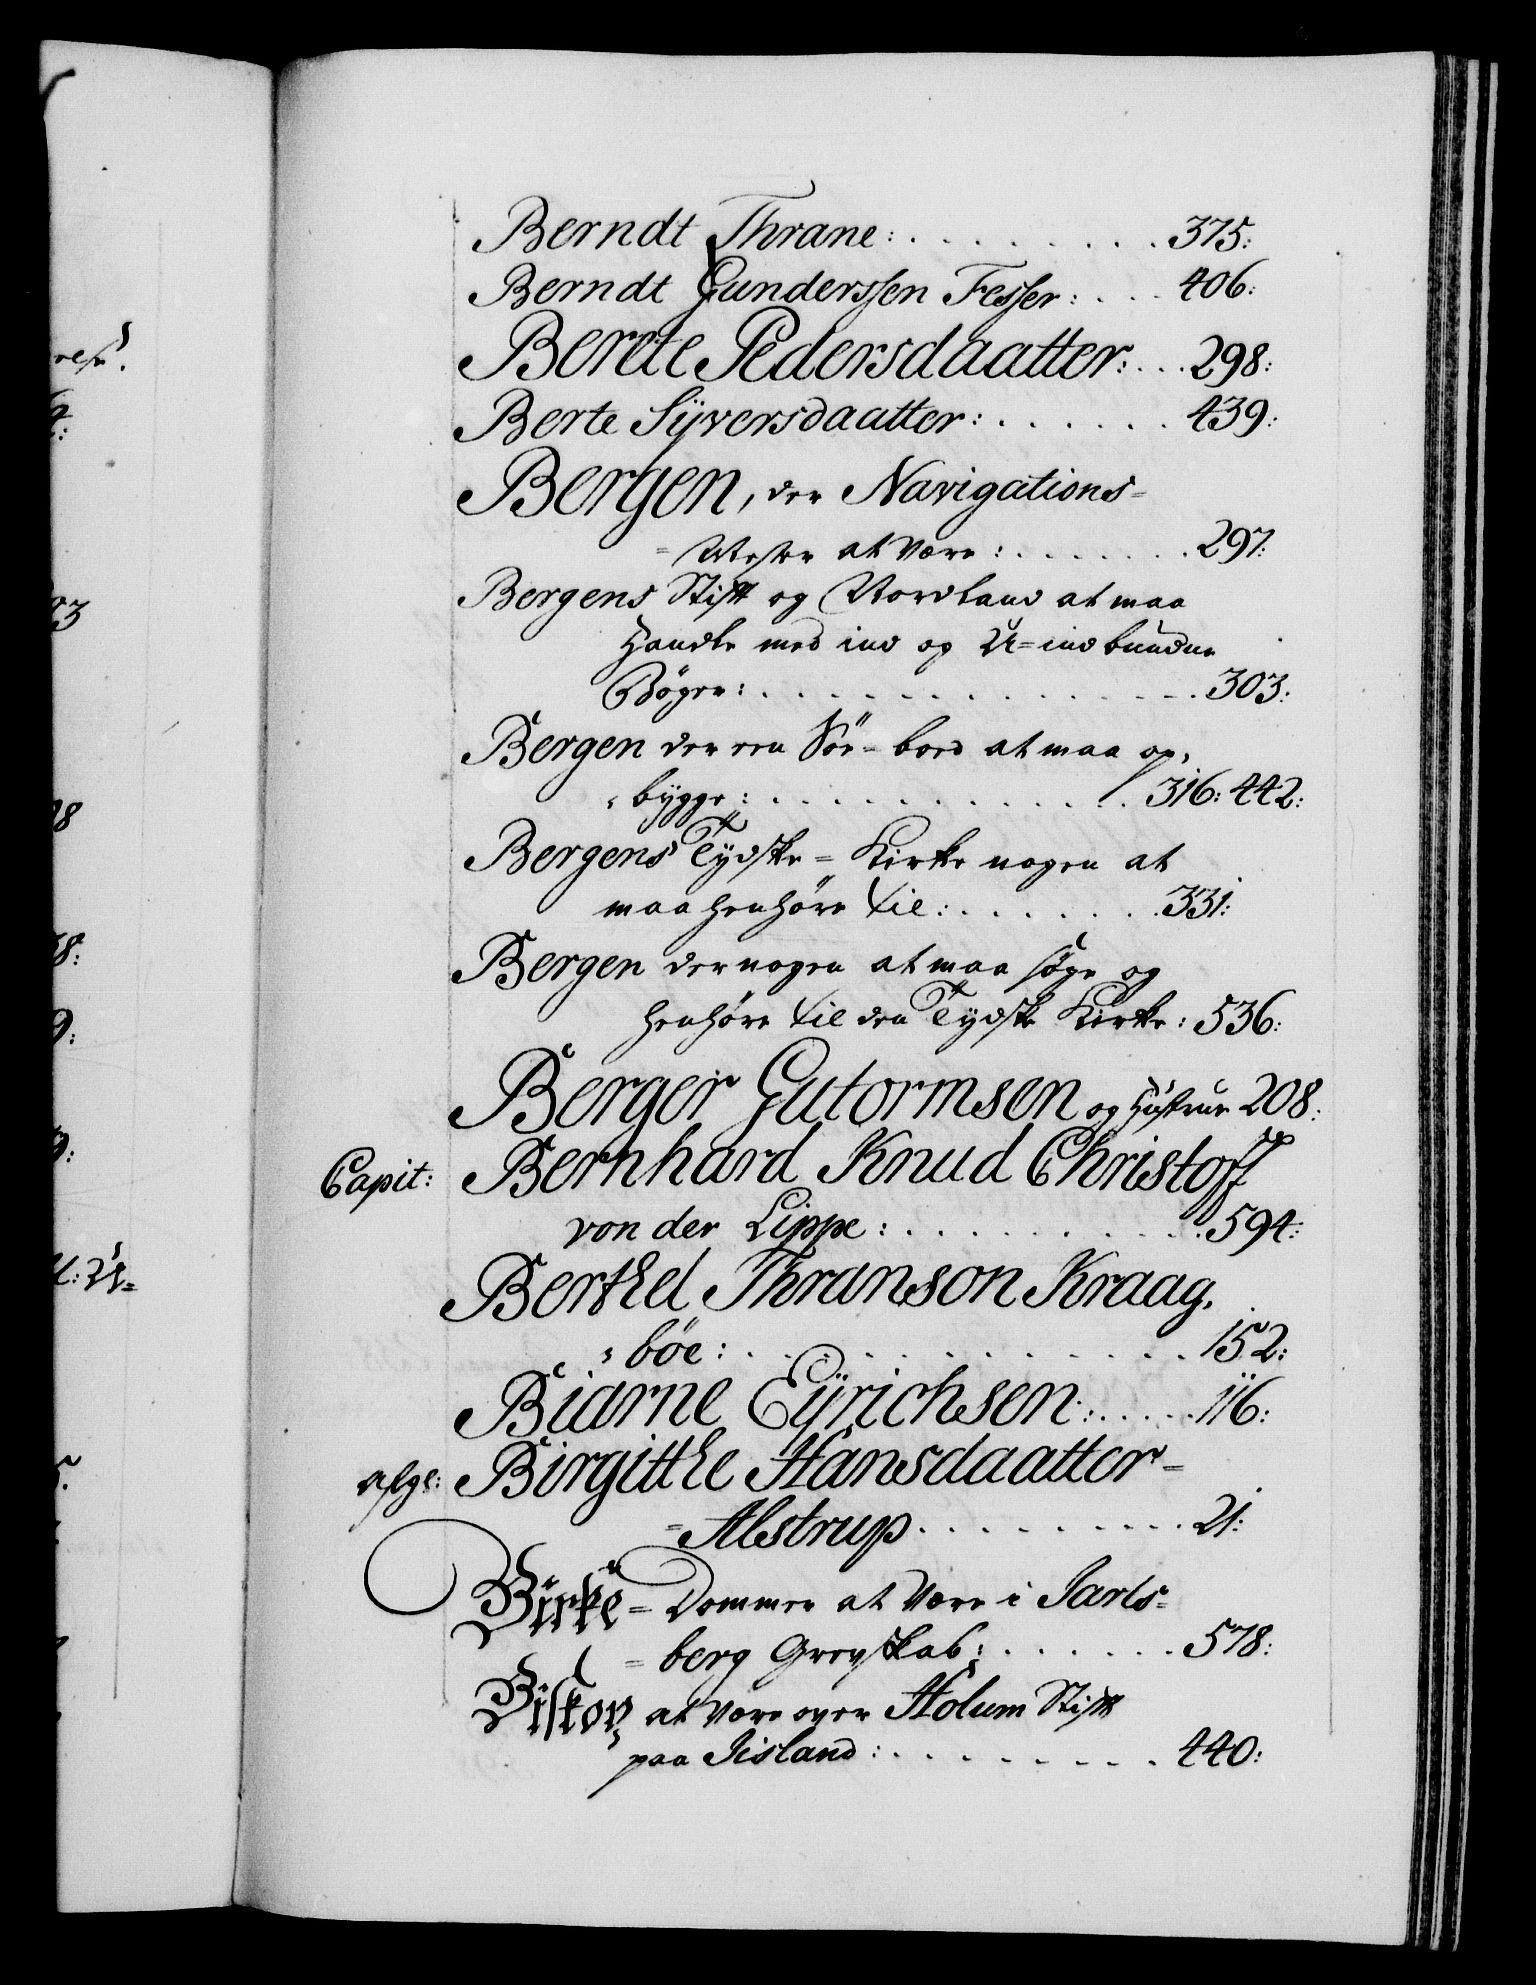 Berndt Thrane: . . . . . . . . . 375:
Berndt Gunderssen Fesser: . . . 406:
Berete Pedersdaatter: . . . 298:
Berte Sÿversdaatter: . . . . . . . 439:
Bergen, der Navigations=
= Mester at være: . . . . . . . 297:
Bergens Stift og Nordland at maa
Handle med ind og U=indbundne
Bøger: . . . . . . . . . . . . . . . 303:
Bergen der een Söe=boed at maa op,
, bÿgge: . . . . . . . . . . . . . 316: 442:
Bergens Tydske=Kirke nogen at
maa henhöre til: . . . . . . . 331:
Bergen der nogen at maa söge og
henhöre til den Tydske Kirke: 536:
Berger Gutormsen og Hustrue 208:
Capit: Bernhard Knud Christoff
von der Lippe: . . . . . . . . . . . 594:
Berthel Thranson Kraag,
, böe: . . . . . . . . . . . . . . . 152:
Biarne Eÿrichsen: . . . . . 116:
afge: Birgitthe Hansdaatter=
=Alstrup . . . . . . . . . . 21:
Birke=Dommer at være i Jarls=
=berg Grevskab: . . . . . . . 578:
Biskop at være over Holum Stift
paa Iisland: . . . . . . . . . 440: